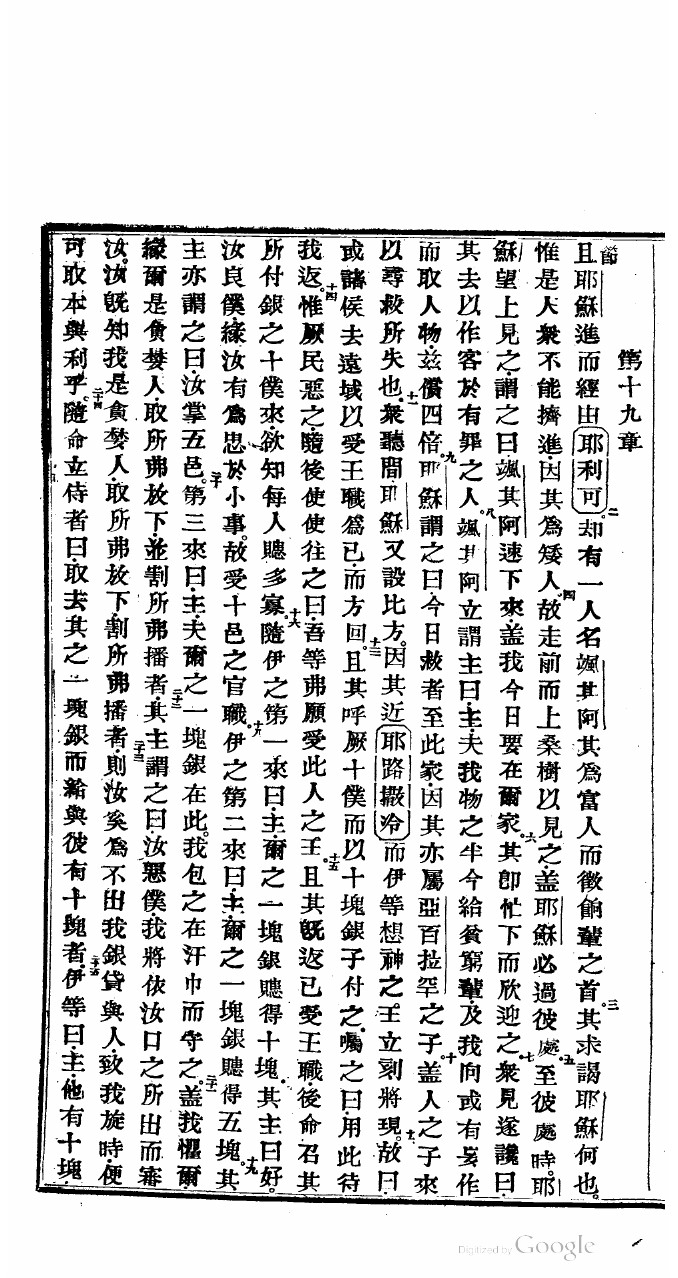 第十九章
節
且耶穌進而經由耶利可。二却有一人名颯其阿其為富人而徵餉輩之首。三其求謁耶穌何也。
惟是人衆不能擠進因其為矮人。四故走前而上桑樹以見之盖耶穌必過彼處。五至彼處時。耶
穌望上見之謂之曰颯其阿速下來盖我今日要在爾家。六其卽忙下而欣迎之。七衆見遂讒曰
其去以作客於有罪之人。八颯其阿立謂主曰主夫我物之半今給貧窮輩及我向或有妄作
而取人物玆償四倍。九耶穌謂之曰今日救者至此家因其亦屬亞百拉罕之子。十盖人之子來
以尋救所失也。十一衆聽間耶穌又設比方。因其近耶路撒冷而伊等想神之王立刻將現。十二故曰
或諸侯去遠域以受王職為已而方回。十三且其呼厥十僕而以十塊銀子付之。囑之曰用此待
我返。十四惟厥民惡之隨後使使往之曰吾等弗願受此人之王。十五且其旣返已受王職後命召其
所付銀之十僕來欲知每人賺多寡。十六隨伊之第一來曰主爾之一塊銀賺得十塊。十七其主曰好。
汝良僕緣汝有為忠於小事。故受十邑之官職。十八伊之第二來曰主爾之一塊銀賺得五塊。十九其
主亦謂之曰汝掌五邑。二十第三來曰主夫爾之一塊銀在此。我包之在汗巾而守之。二一盖我懼爾
緣爾是貪婪人取所弗放下並割所弗播者。二二其主謂之曰汝惡僕我將依汝口之所出而審
汝。汝旣知我是貪婪人取所弗放下割所弗播者。二三則汝奚為不出我銀貸與人致我旋時便
可取本與利乎。二四隨命立侍者曰取去其之一塊銀而給與彼有十塊者。二五伊等曰主他有十塊
Digitized by Google